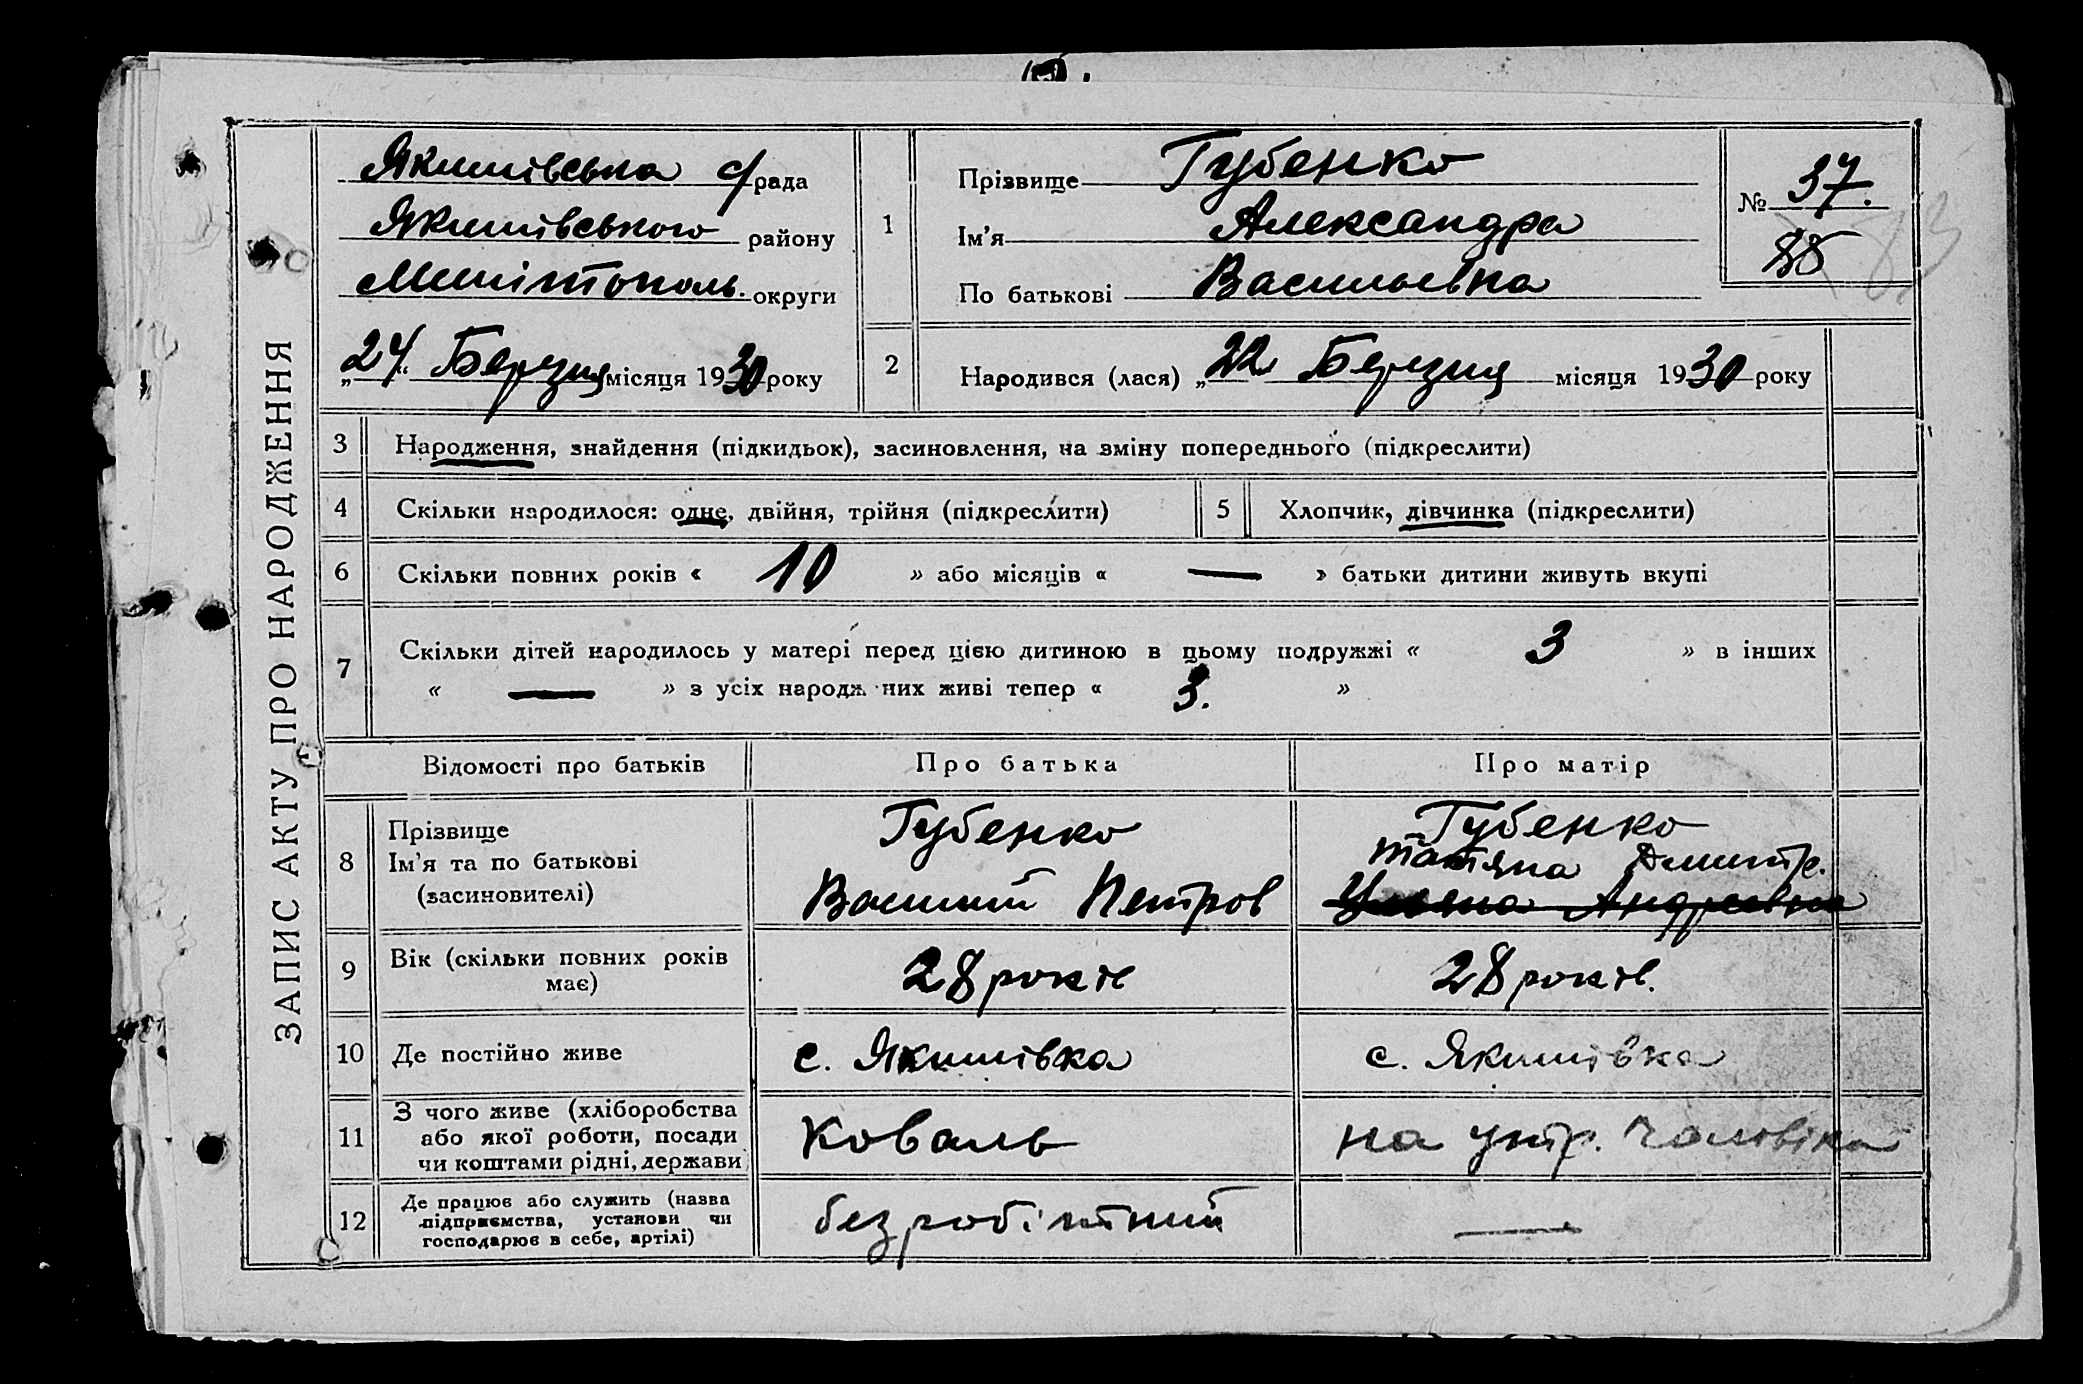 ЗАПИС АКТУ ПРО НАРОДЖЕННЯ
Якимівська с/рада
Якимівського району
Мелітополь. округи
„24“ Березня місяця 1930 року
1
Прізвище Губенко
Ім'я Александра
По батькові Васильевна
№ 37.
2
Народився (лася) „22 Березня місяця 1930 року
3 Народження, знайдення (підкидьок), засиновлення, на зміну попереднього (підкреслити)
4 Скільки народилося: одне, двійня, трійня (підкреслити)
5 Хлопчик, дівчинка (підкреслити)
6 Скільки повних років « 10 » або місяців « — » батьки дитини живуть вкупі
7 Скільки дітей народилось у матері перед цією дитиною в цьому подружжі « 3 » в інших
« — » з усіх народж них живі тепер « 3. »
Відомості про батьків Про батька Про матір
8 Прізвище
Ім'я та по батькові
(засиновителі)
Губенко
Василий Петров
Губенко
Татяна Дмитр.
Уляна Андреевна
9 Вік (скільки повних років
має)
28 років
28 років.
10 Де постійно живе
с. Якимівка
с. Якимівка
11 З чого живе (хліборобства
або якої роботи, посади
чи коштами рідні, держави
Коваль
на утр. чоловіка
12 Де працює або служить (назва
підприємства, установи чи
господарює в себе, артілі)
безробітний
—